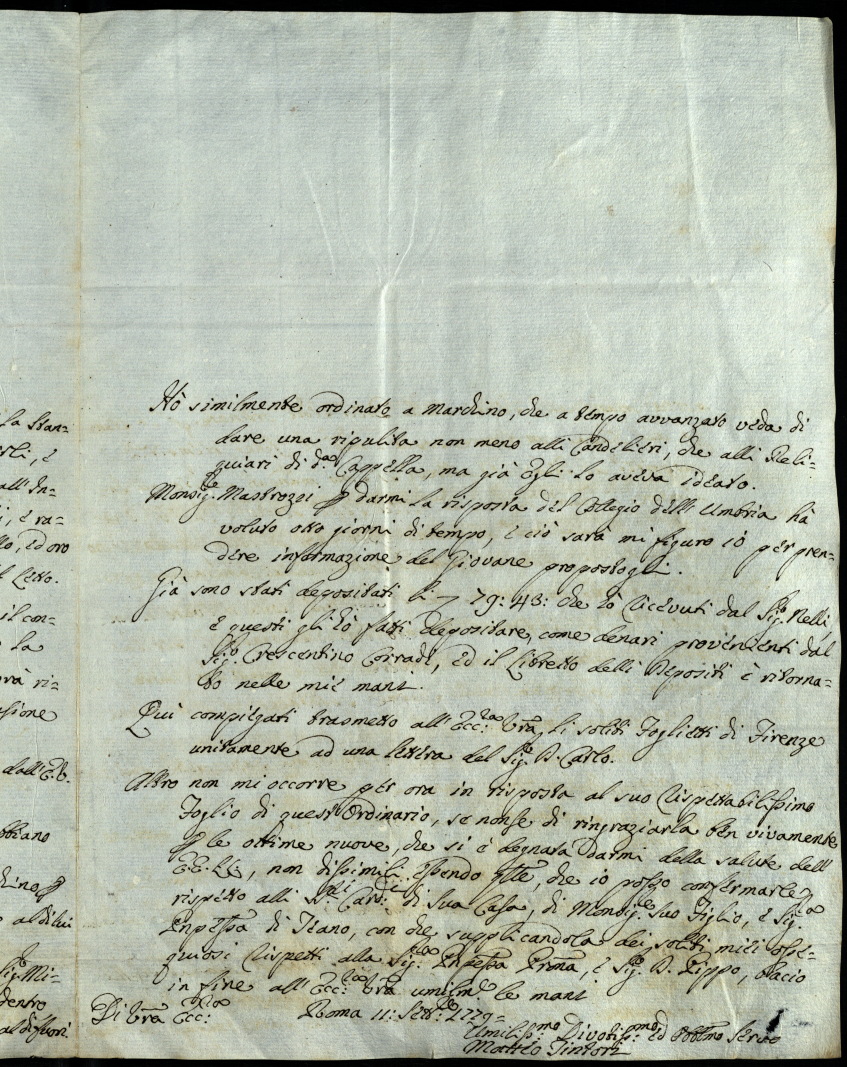 Hò similmente ordinato a Marchino, che a tempo avvanzato veda di
dare una ripulita non meno alli Candelieri, che alli Reli=
quiari di d.ᵃ Cappella, ma già Egli lo aveva ideato.
Monsig.ʳᵉ Mastrozzi p darmi la risposta del Collegio dell'Umbria hà
voluto otto giorni di tempo, e ciò sarà mi figuro io per pren=
dere informazione del Giovane propostogli.
Già sono stati depositati li 79: 43: che hò ricevuti dal Sig.ʳ Nelli,
e questi gli hò fatti depositare, come denari provenienti dal
Sig.ʳ Crescentino Corradi, ed il Libretto delli Depositi è ritorna=
to nelle mie mani.
Quì compiegati trasmetto all'Ecc:ᶻᵃ Vrã, li soliti Foglietti di Firenze
unitamente ad una lettera del Sig.ʳ D. Carlo.
Altro non mi occorre per ora in risposta al suo rispettabilissimo
Foglio di quest'Ordinario, se non se di ringraziarla ben vivamente
p le ottime nuove, che si è degnata darmi della salute dell'
EE.LL., non dissimili essendo qste, che io posso confermarle
rispetto alli SS.ʳⁱ Card:ˡⁱ di Sua Casa, di Monsig.ʳᵉ suo Figlio, e Sig.ʳᵃ
Pnpessa di Teano, con che supplicandola dei soliti miei osse=
quiosi rispetti alla Sig.ʳᵃ Pnpessa Prima, e Sig.ʳ D. Pippo, bacio
in fine all'Ecc:ᶻᵃ Vrã umilm.ᵗᵉ le mani
Di Vrã Ecc:ᶻᵃ Roma 11: Sett.ʳᵉ 1779=
Umiliss.ᵐᵒ Divotiss.ᵐᵒ ed Obbmo Servo
Matteo Tintori
la Stan=
all'In=
i, e ra=
lo, ed oro
il Letto.
il con=
la
rà ri=
sione
dall'E.V.
bbiano
hino p
al di lui
Sig.ʳ Mi=
dentro
al difuori